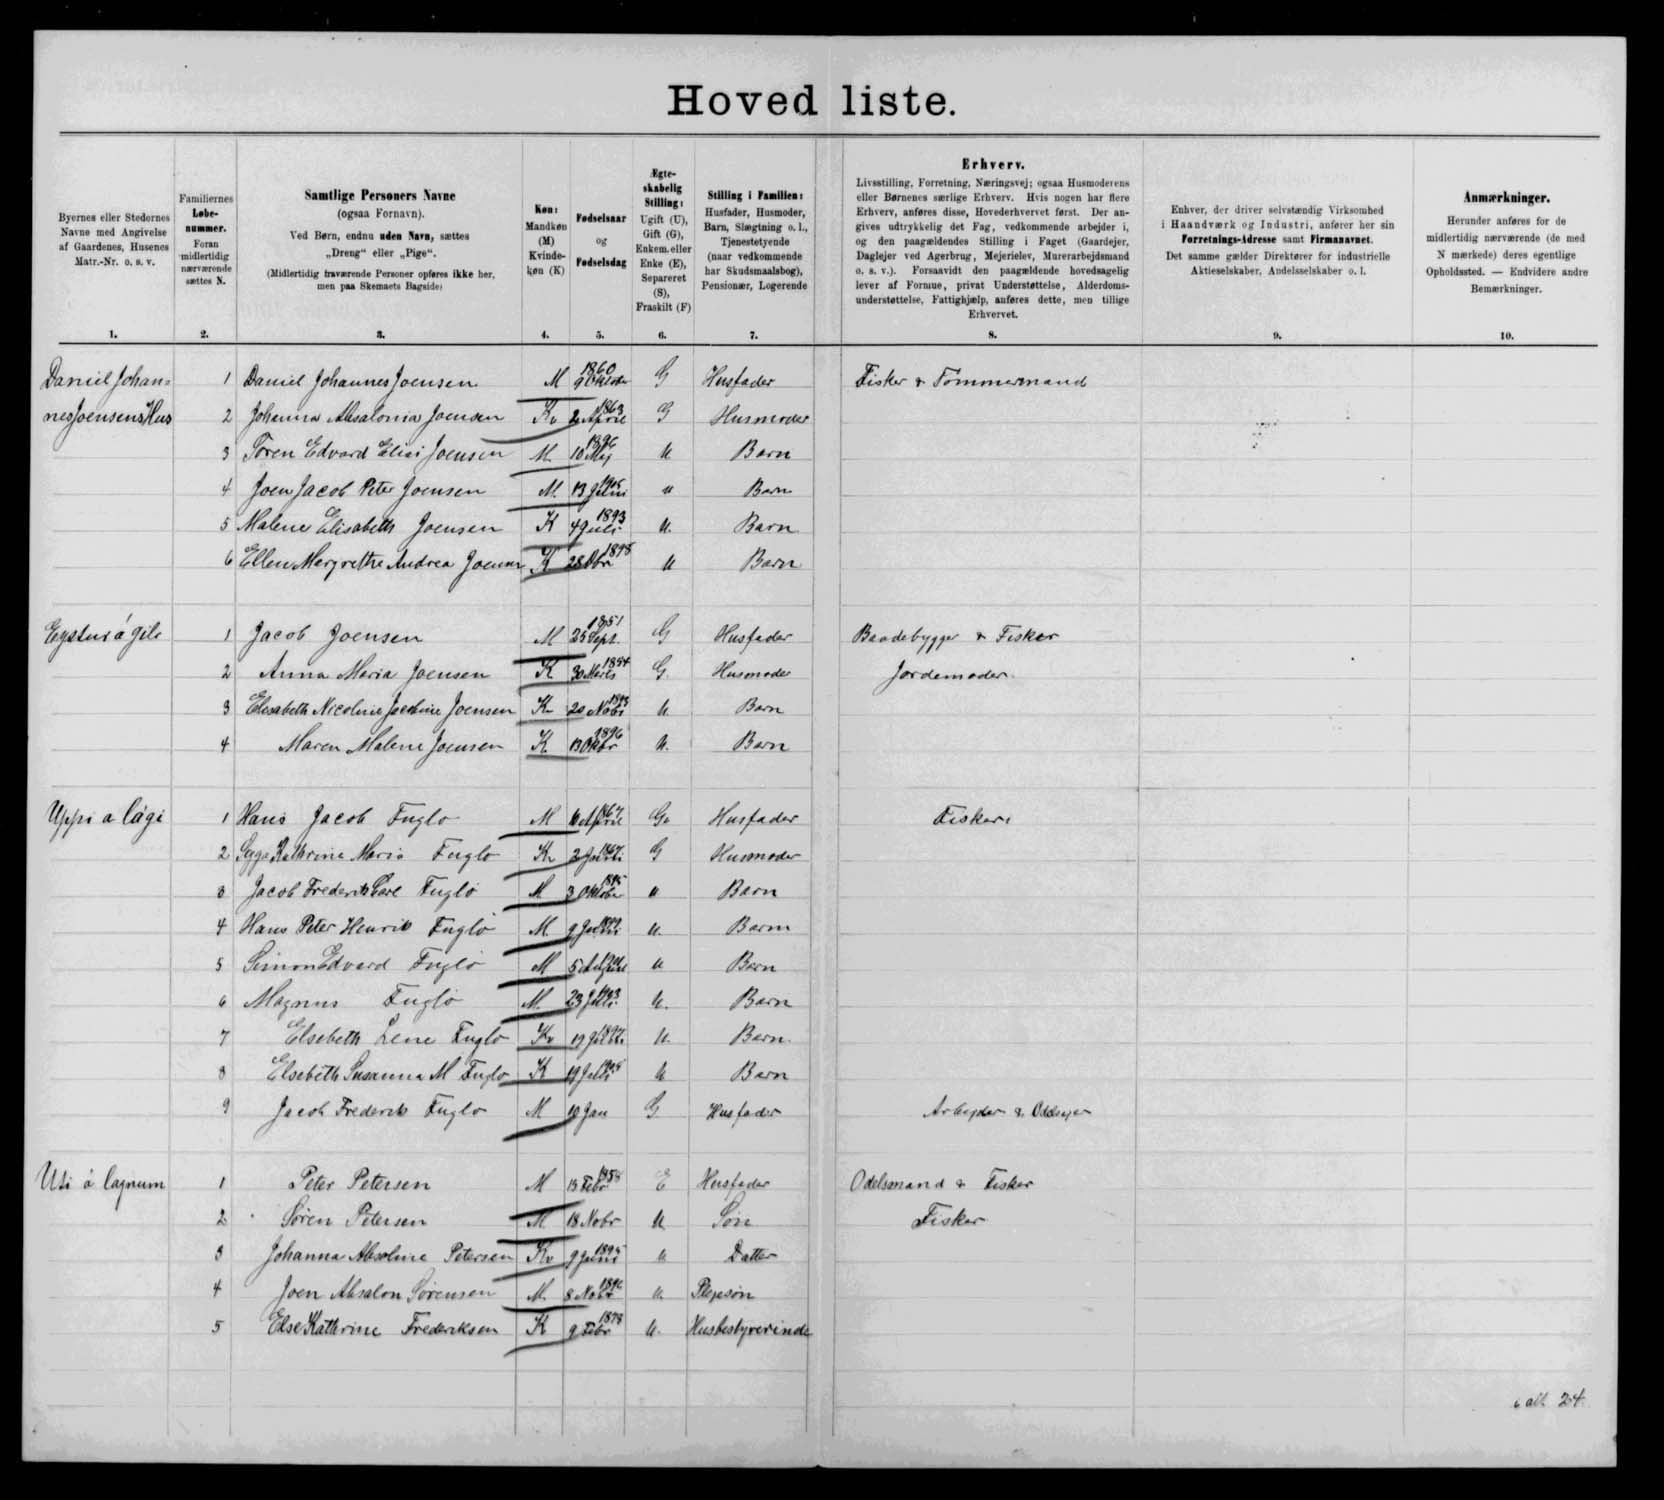 Hovedliste.
Byernes eller Stedernes
Navne med Angivelse
af Gaardenes, Husenes
Matr.-Nr. o. s. v.
1.
Familiernes
Løbe-
nummer.
Foran
midlertidig
nærværende
sættes N.
2.
Samtlige Personers Navne
(ogsaa Fornavn).
Ved Børn, endnu uden Navn, sættes
„Dreng“ eller „Pige“.
(Midlertidig fraværende Personer opføres ikke her,
men paa Skemaets Bagside)
3.
Køn:
Mandkøn
(M)
Kvinde-
køn (K)
4.
Fødselsaar
og
Fødselsdag
5.
Ægte-
skabelig
Stilling:
Ugift (U),
Gift (G),
Enkem. eller
Enke (E),
Separeret
(S),
Fraskilt (F)
6.
Stilling i Familien:
Husfader, Husmoder,
Barn, Slægtning o. l.,
Tjenestetyende
(naar vedkommende
har Skudsmaalsbog),
Pensionær, Logerende
7.
Erhverv.
Livsstilling, Forretning, Næringsvej; ogsaa Husmoderens
eller Børnenes særlige Erhverv. Hvis nogen har flere
Erhverv, anføres disse, Hovederhvervet først. Der an-
gives udtrykkelig det Fag, vedkommende arbejder i,
og den paagældendes Stilling i Faget (Gaardejer,
Daglejer ved Agerbrug, Mejerielev, Murerarbejdsmand
o. s. v.). Forsaavidt den paagældende hovedsagelig
lever af Formue, privat Understøttelse, Alderdoms-
understøttelse, Fattighjælp, anføres dette, men tillige
Erhvervet.
8.
Enhver, der driver selvstændig Virksomhed
i Haandværk og Industri, anfører her sin
Forretnings-Adresse samt Firmanavnet.
Det samme gælder Direktører for industrielle
Aktieselskaber, Andelsselskaber o. l.
9.
Anmærkninger.
Herunder anføres for de
midlertidig nærværende (de med
N mærkede) deres egentlige
Opholdssted. — Endvidere andre
Bemærkninger.
10.
Daniel Johan= 1 Daniel Johannes Joensen M 1860 9 Oktober G Husfader Fisker & Tømmermand
nes Joensens Hus 2 Johanna Absalonia Joensen Kv 1863 2 April G Husmoder
3 Edvard Elisi Joensen M. 1896 10 Maj U Barn
4 Joen Jacob Peter Joensen M. 1905 13 Juni u Barn
5 Malene Elisabeth Joensen K 1893 4 Juli U. Barn
6 Ellen Margrethe Andrea Joensen K 1898 28 U Barn
Eystur á gili 1 Jacob Joensen M 1851 25 Sept. G Husfader Baadebygger & Fisker
2 Anna Maria Joensen K 1854 30 Marts G. Husmoder Jordemoder.
3 Elisabeth Nicoline Jacobine Joensen Kv 1893 20 Nobr U Barn
4 Maren Malene Joensen K 1896 13 Oktbr U. Barn
Uppi a lági 1 Hans Jacob Fuglø M 16 April G. Husfader Fisker
2 Kathrina Maria Fuglø Kv 2 G Husmoder
3 Jacob Frederik Carl Fuglø M 1895 3 Oktober u Barn
4 Hans Peter Henrik Fuglø M. 9 U. Barn
5 Simon Edvard Fuglø M 5 U Barn
6 Magnus Fuglø M. 1903 23 Juli U. Barn
7 Elsebeth Lene Fuglø Kv 1897 19 U. Barn.
8 Elsebeth Susanna M Fuglø K 1905 19 Juli U Barn
9 Jacob Frederik Fuglø M 10 Jan G. Husfader Arbejder &
Uti á lagnum 1 Peter Petersen M 13 Febr E Husfader Odelsmand & Fisker
2 Søren Petersen M 18 Nobr U Søn Fisker
3 Johanna Absoline Petersen Kv 1895 9 Juni u Datter
4 Joen Absalon Sørensen M. 8 Nobr u. Plejesøn
5 Else Kathrine Frederiksen K 1878 9 Febr U. Husbestyrerinde
i alt 24.